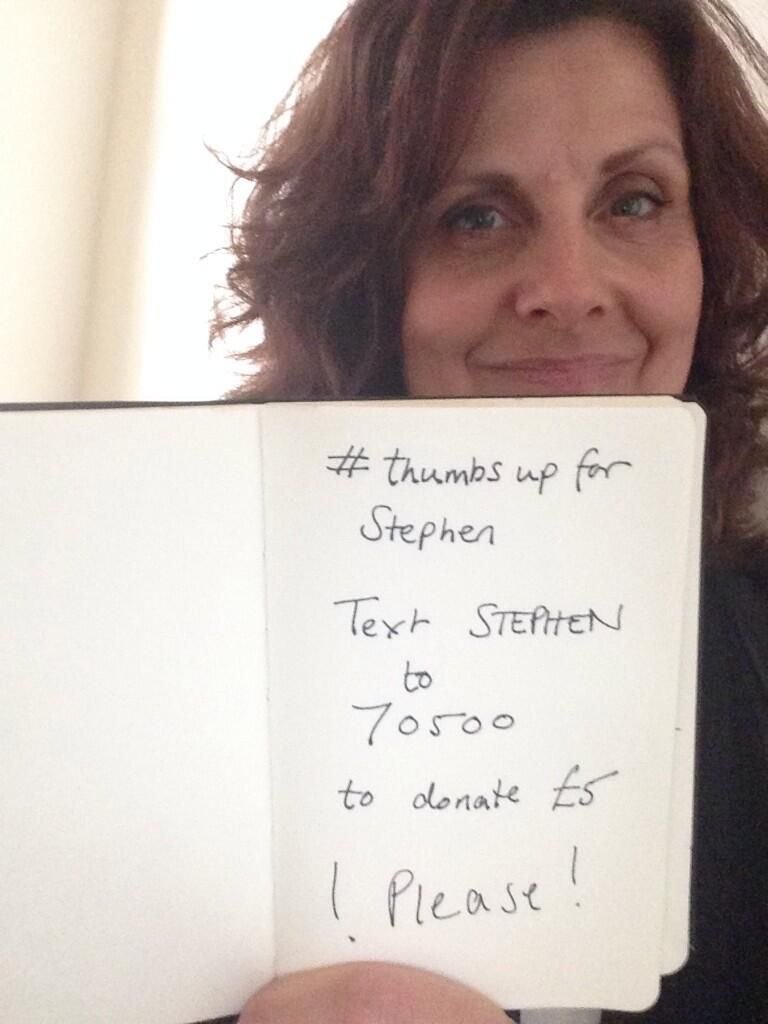 # thumbs up for
Stephen
Text STEPHEN
to
70500
to donate £5
! Please!